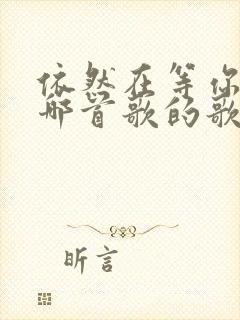 依然在等你
那首歌的歌
昕言